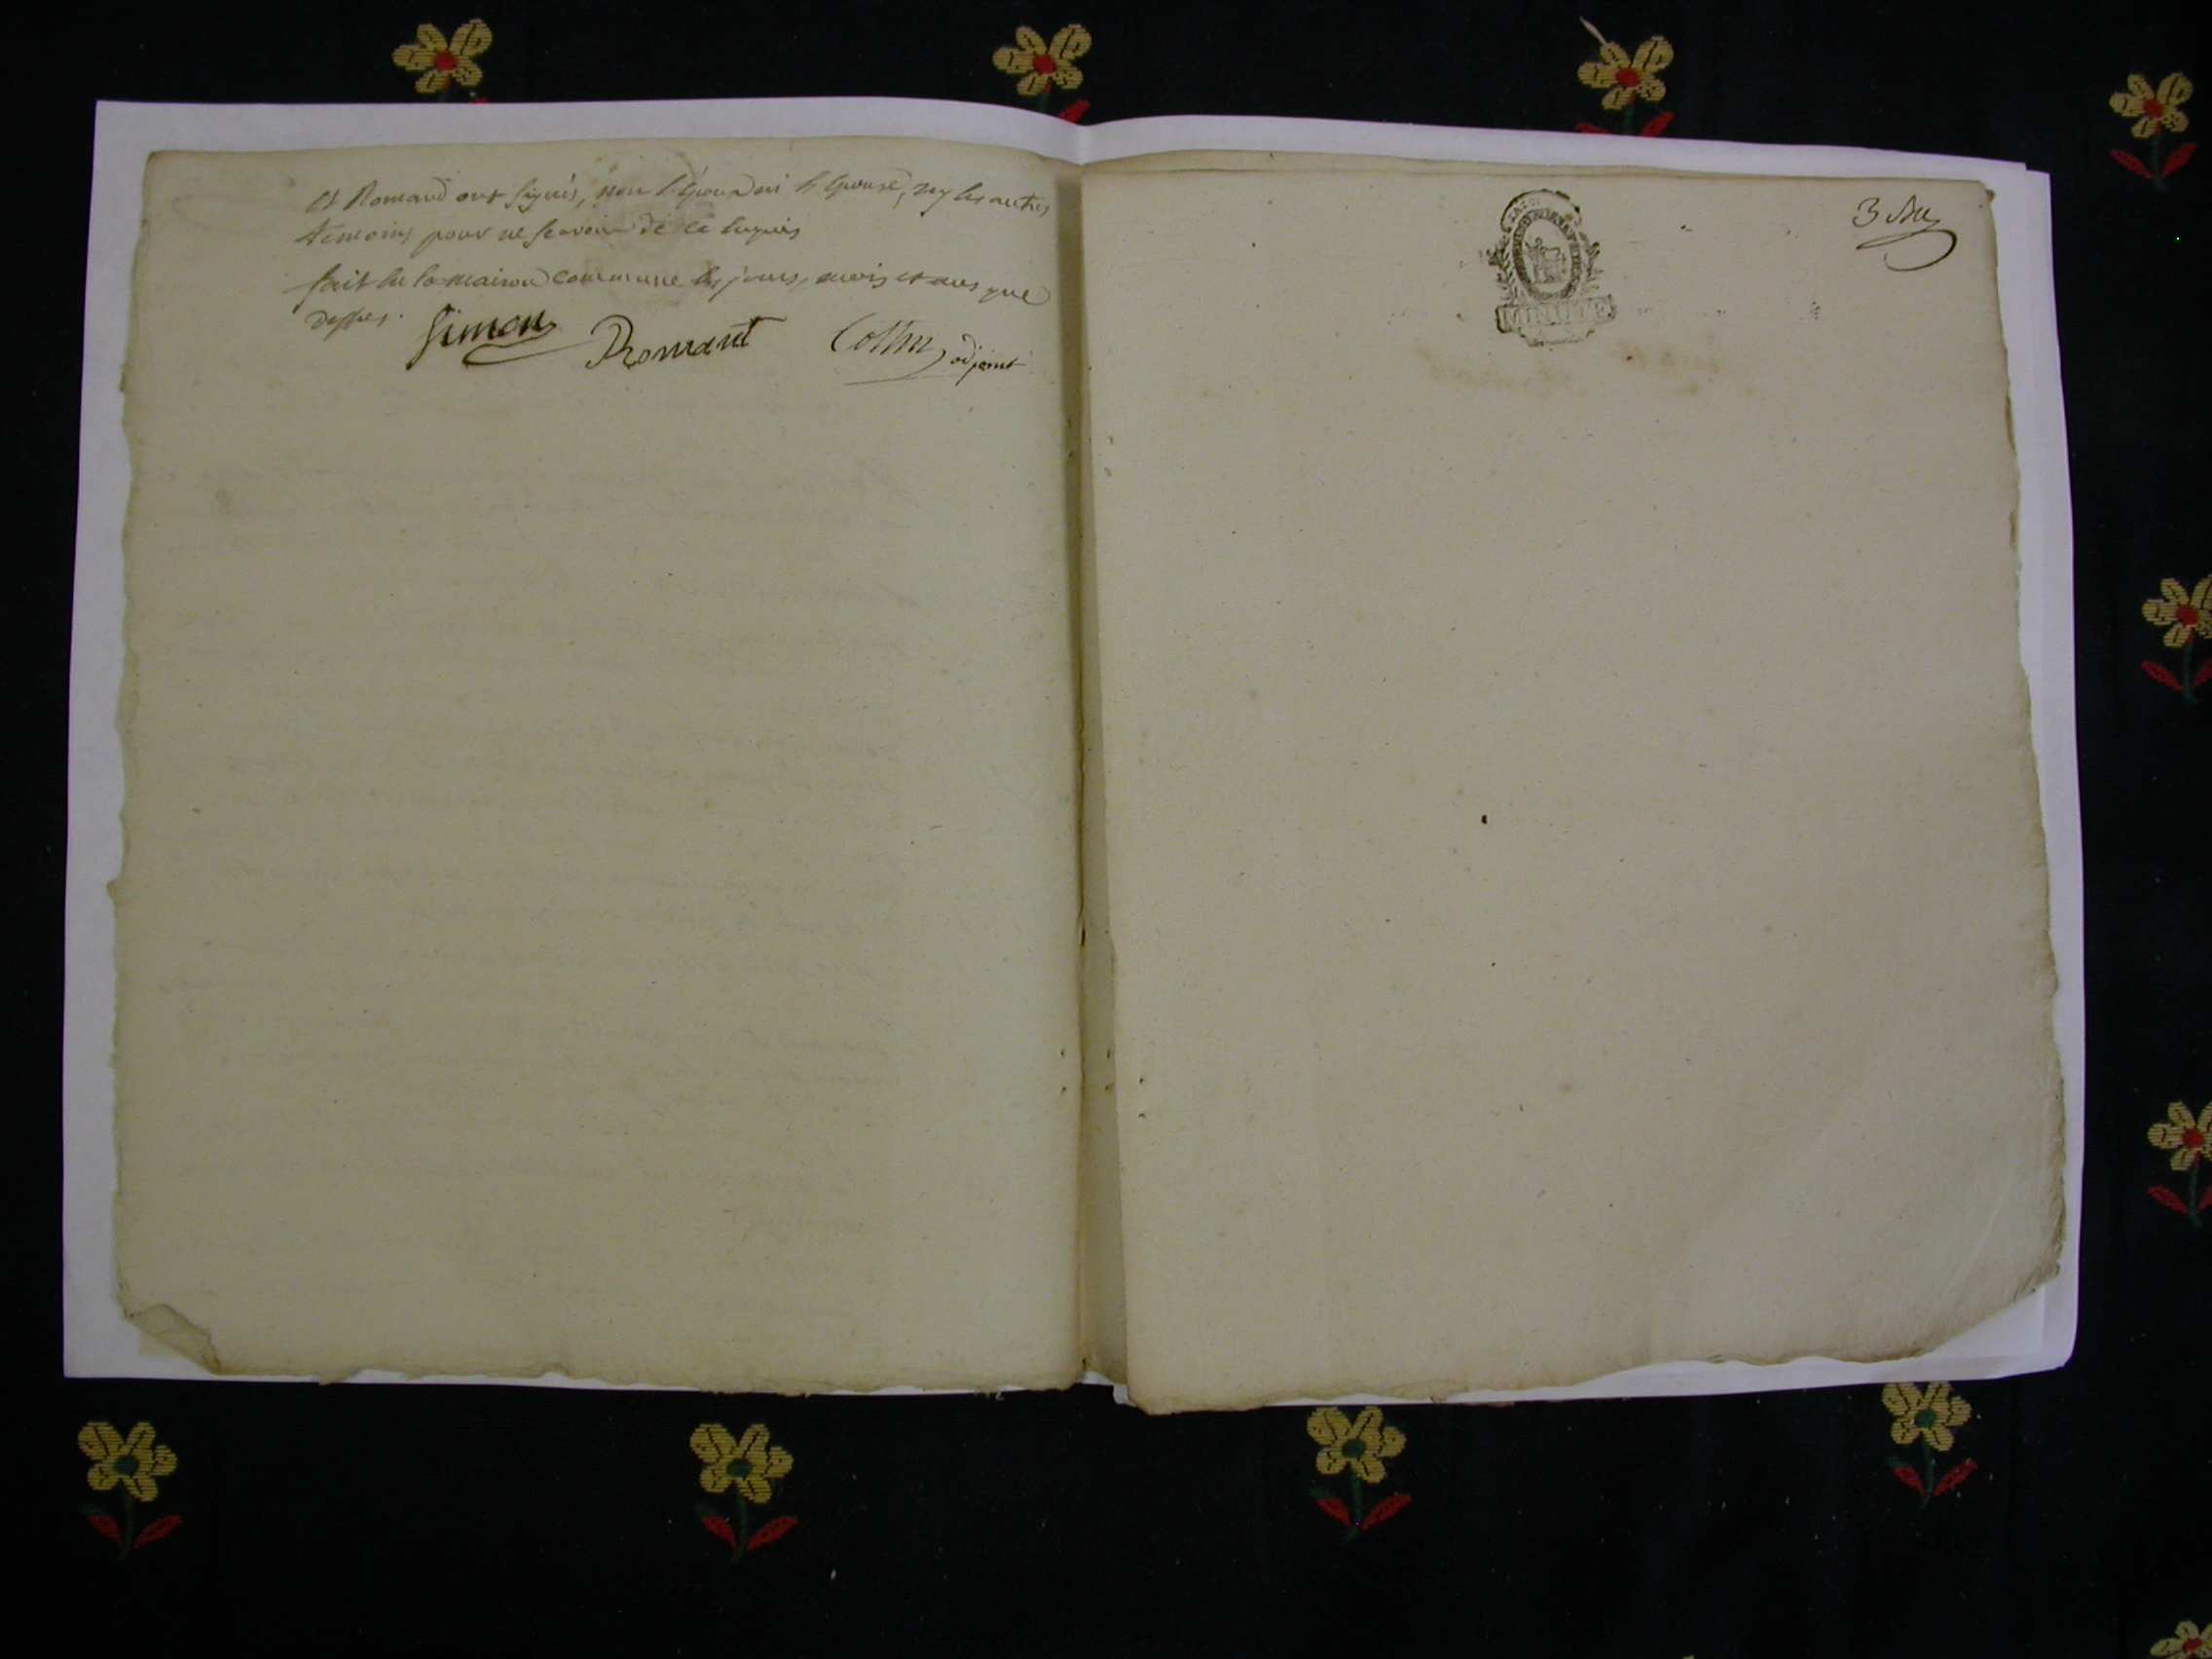 et Romand ont signés, non l'époux ni l'épouse, ny les autres
témoins pour ne scavoir de ce
fait en la maison commune les jours, mois et ans que
dessus.
Simon Romand Collin adjoint
3
MINUTE